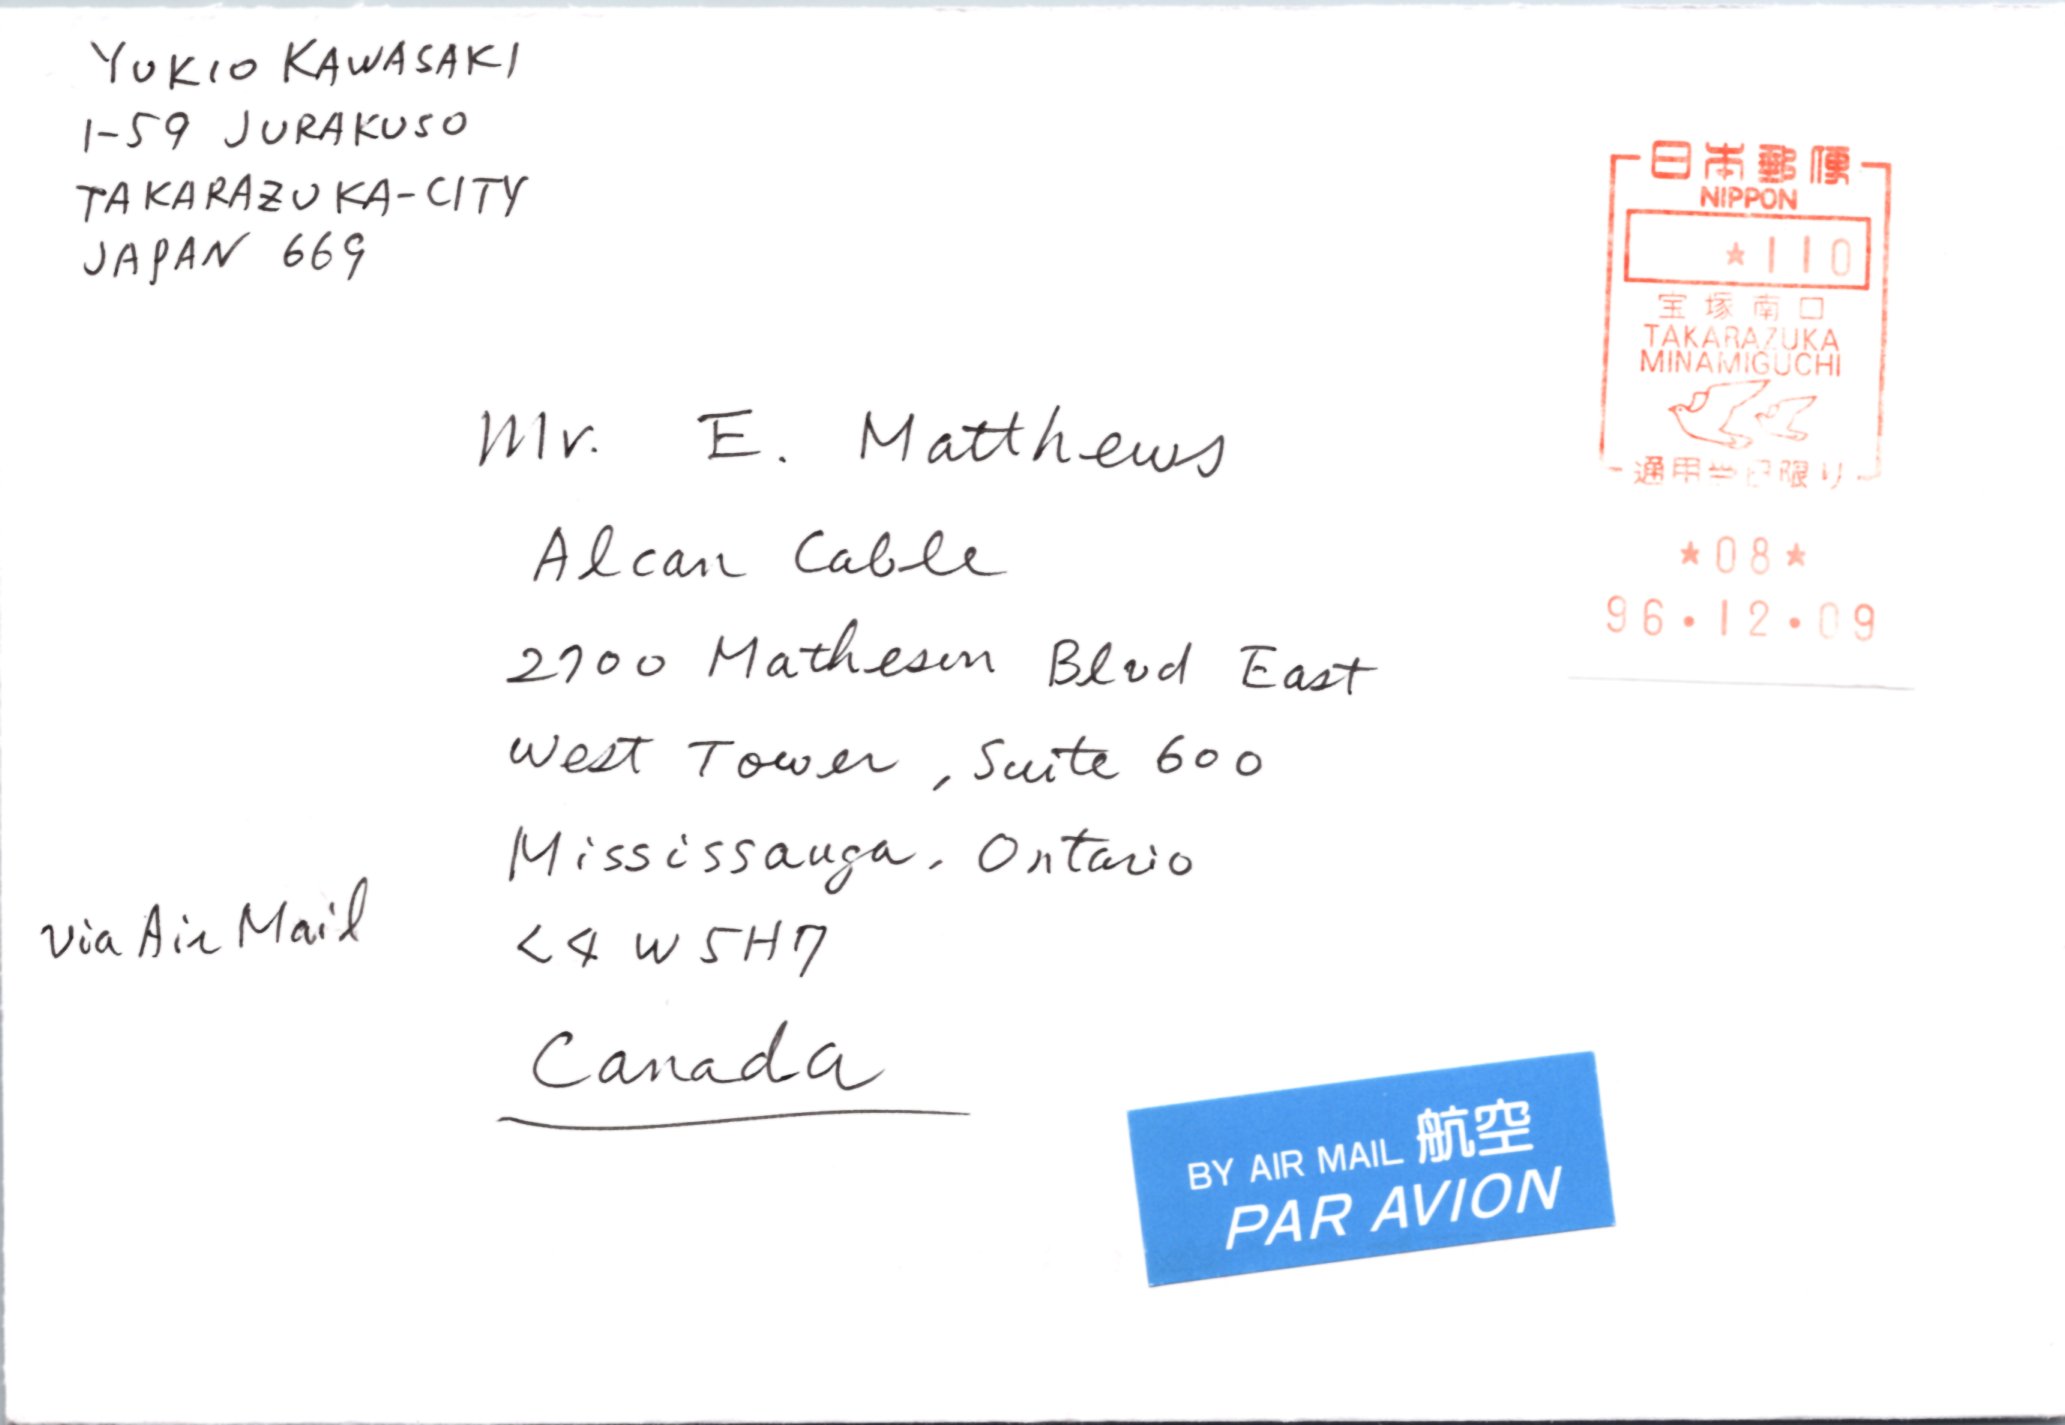 YUKIO KAWASAKI
1-59 JURAKUSO
TAKARAZUKA-CITY
JAPAN 669
日本郵便
NIPPON
*110
宝塚南口
TAKARAZUKA
MINAMIGUCHI
通用当日限り
*08*
96.12.09
Mr. E. Matthews
Alcan Cable
2700 Matheson Blvd East
West Tower, Suite 600
Mississauga, Ontario
L4W5H7
Canada
via Air Mail
BY AIR MAIL 航空
PAR AVION